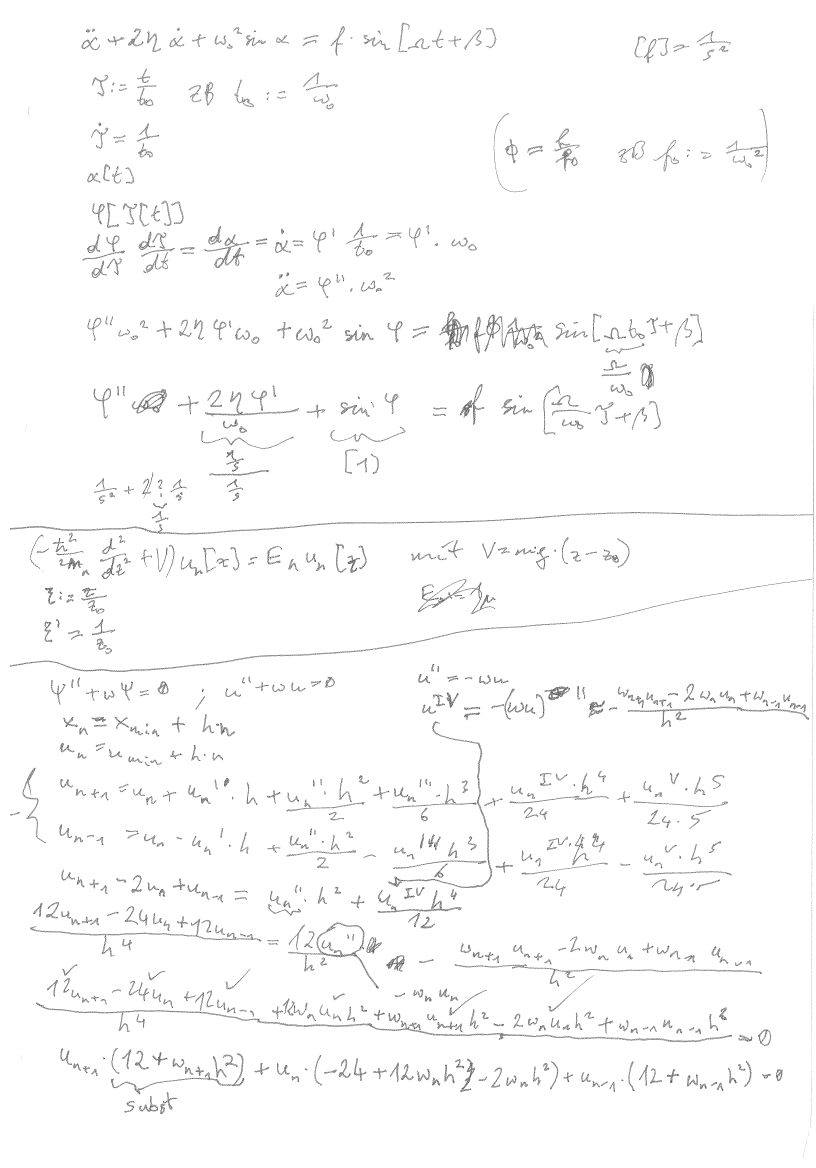 α̈ + 2η α̇ + ω₀² sin α = f · sin[Ωt + β]    [f] = 1/s²
𝒯 := t/t₀   zB t₀ := 1/ω₀
𝒯̇ = 1/t₀    (ϕ = f/f₀   zB f₀ := 1/ω₀²)
α[t]
φ[𝒯[t]]
dφ/d𝒯 d𝒯/dt = dα/dt = α̇ = φ' 1/t₀ = φ' · ω₀
α̈ = φ'' · ω₀²
φ'' ω₀² + 2η φ' ω₀ + ω₀² sin φ = sin[Ω t₀ 𝒯 + β]
Ω/ω₀
φ'' + 2ηφ'/ω₀ + sin φ = f sin[Ω/ω₀ 𝒯 + β]
1/s / 1/s   [1]
1/s² + 2 ? 1/s
1/s
(-ħ²/2mₙ d²/dz² + V) uₙ[z] = Eₙ uₙ[z]   mit V = mg · (z - z₀)
ξ := z/z₀
ξ' = 1/z₀
ψ'' + wψ = 0 ; u'' + wu = 0   u'' = -wu
xₙ = x_min + h·n   u^IV = -(wu)'' ≈ -(wₙ₊₁uₙ₊₁ - 2wₙuₙ + wₙ₋₁uₙ₋₁)/h²
uₙ = u_min + h·n
uₙ₊₁ = uₙ + uₙ' · h + uₙ''·h²/2 + uₙ'''·h³/6 + uₙ^IV·h⁴/24 + uₙ^V·h⁵/24·5
- { uₙ₋₁ = uₙ - uₙ'·h + uₙ''·h²/2 - uₙ'''h³/6 + uₙ^IV·h⁴/24 - uₙ^V·h⁵/24·5
uₙ₊₁ - 2uₙ + uₙ₋₁ = uₙ''·h² + uₙ^IV h⁴/12
(12uₙ₊₁ - 24uₙ + 12uₙ₋₁)/h⁴ = 12uₙ''/h² - (wₙ₊₁uₙ₊₁ - 2wₙuₙ + wₙ₋₁uₙ₋₁)/h²
-wₙuₙ
(12uₙ₊₁ - 24uₙ + 12uₙ₋₁ + 12wₙuₙh² + wₙ₊₁uₙ₊₁h² - 2wₙuₙh² + wₙ₋₁uₙ₋₁h²)/h⁴ = 0
uₙ₊₁·(12 + wₙ₊₁h²) + uₙ·(-24 + 12wₙh² - 2wₙh²) + uₙ₋₁·(12 + wₙ₋₁h²) = 0
subst